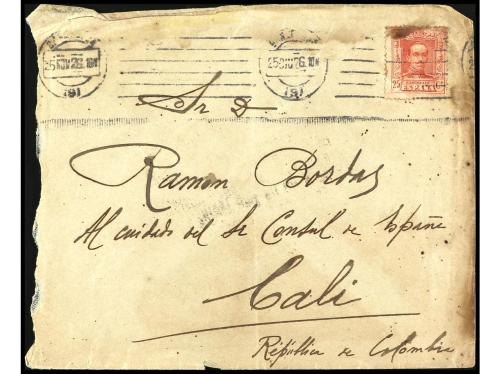 25 NOV 26. 18H
(9)
25 NOV 26. 18H
(9)
25
ESPAÑA
Sr D
Ramon Bordas
Al cuidado del Sr Consul de España
Cali
Républica de Colombia